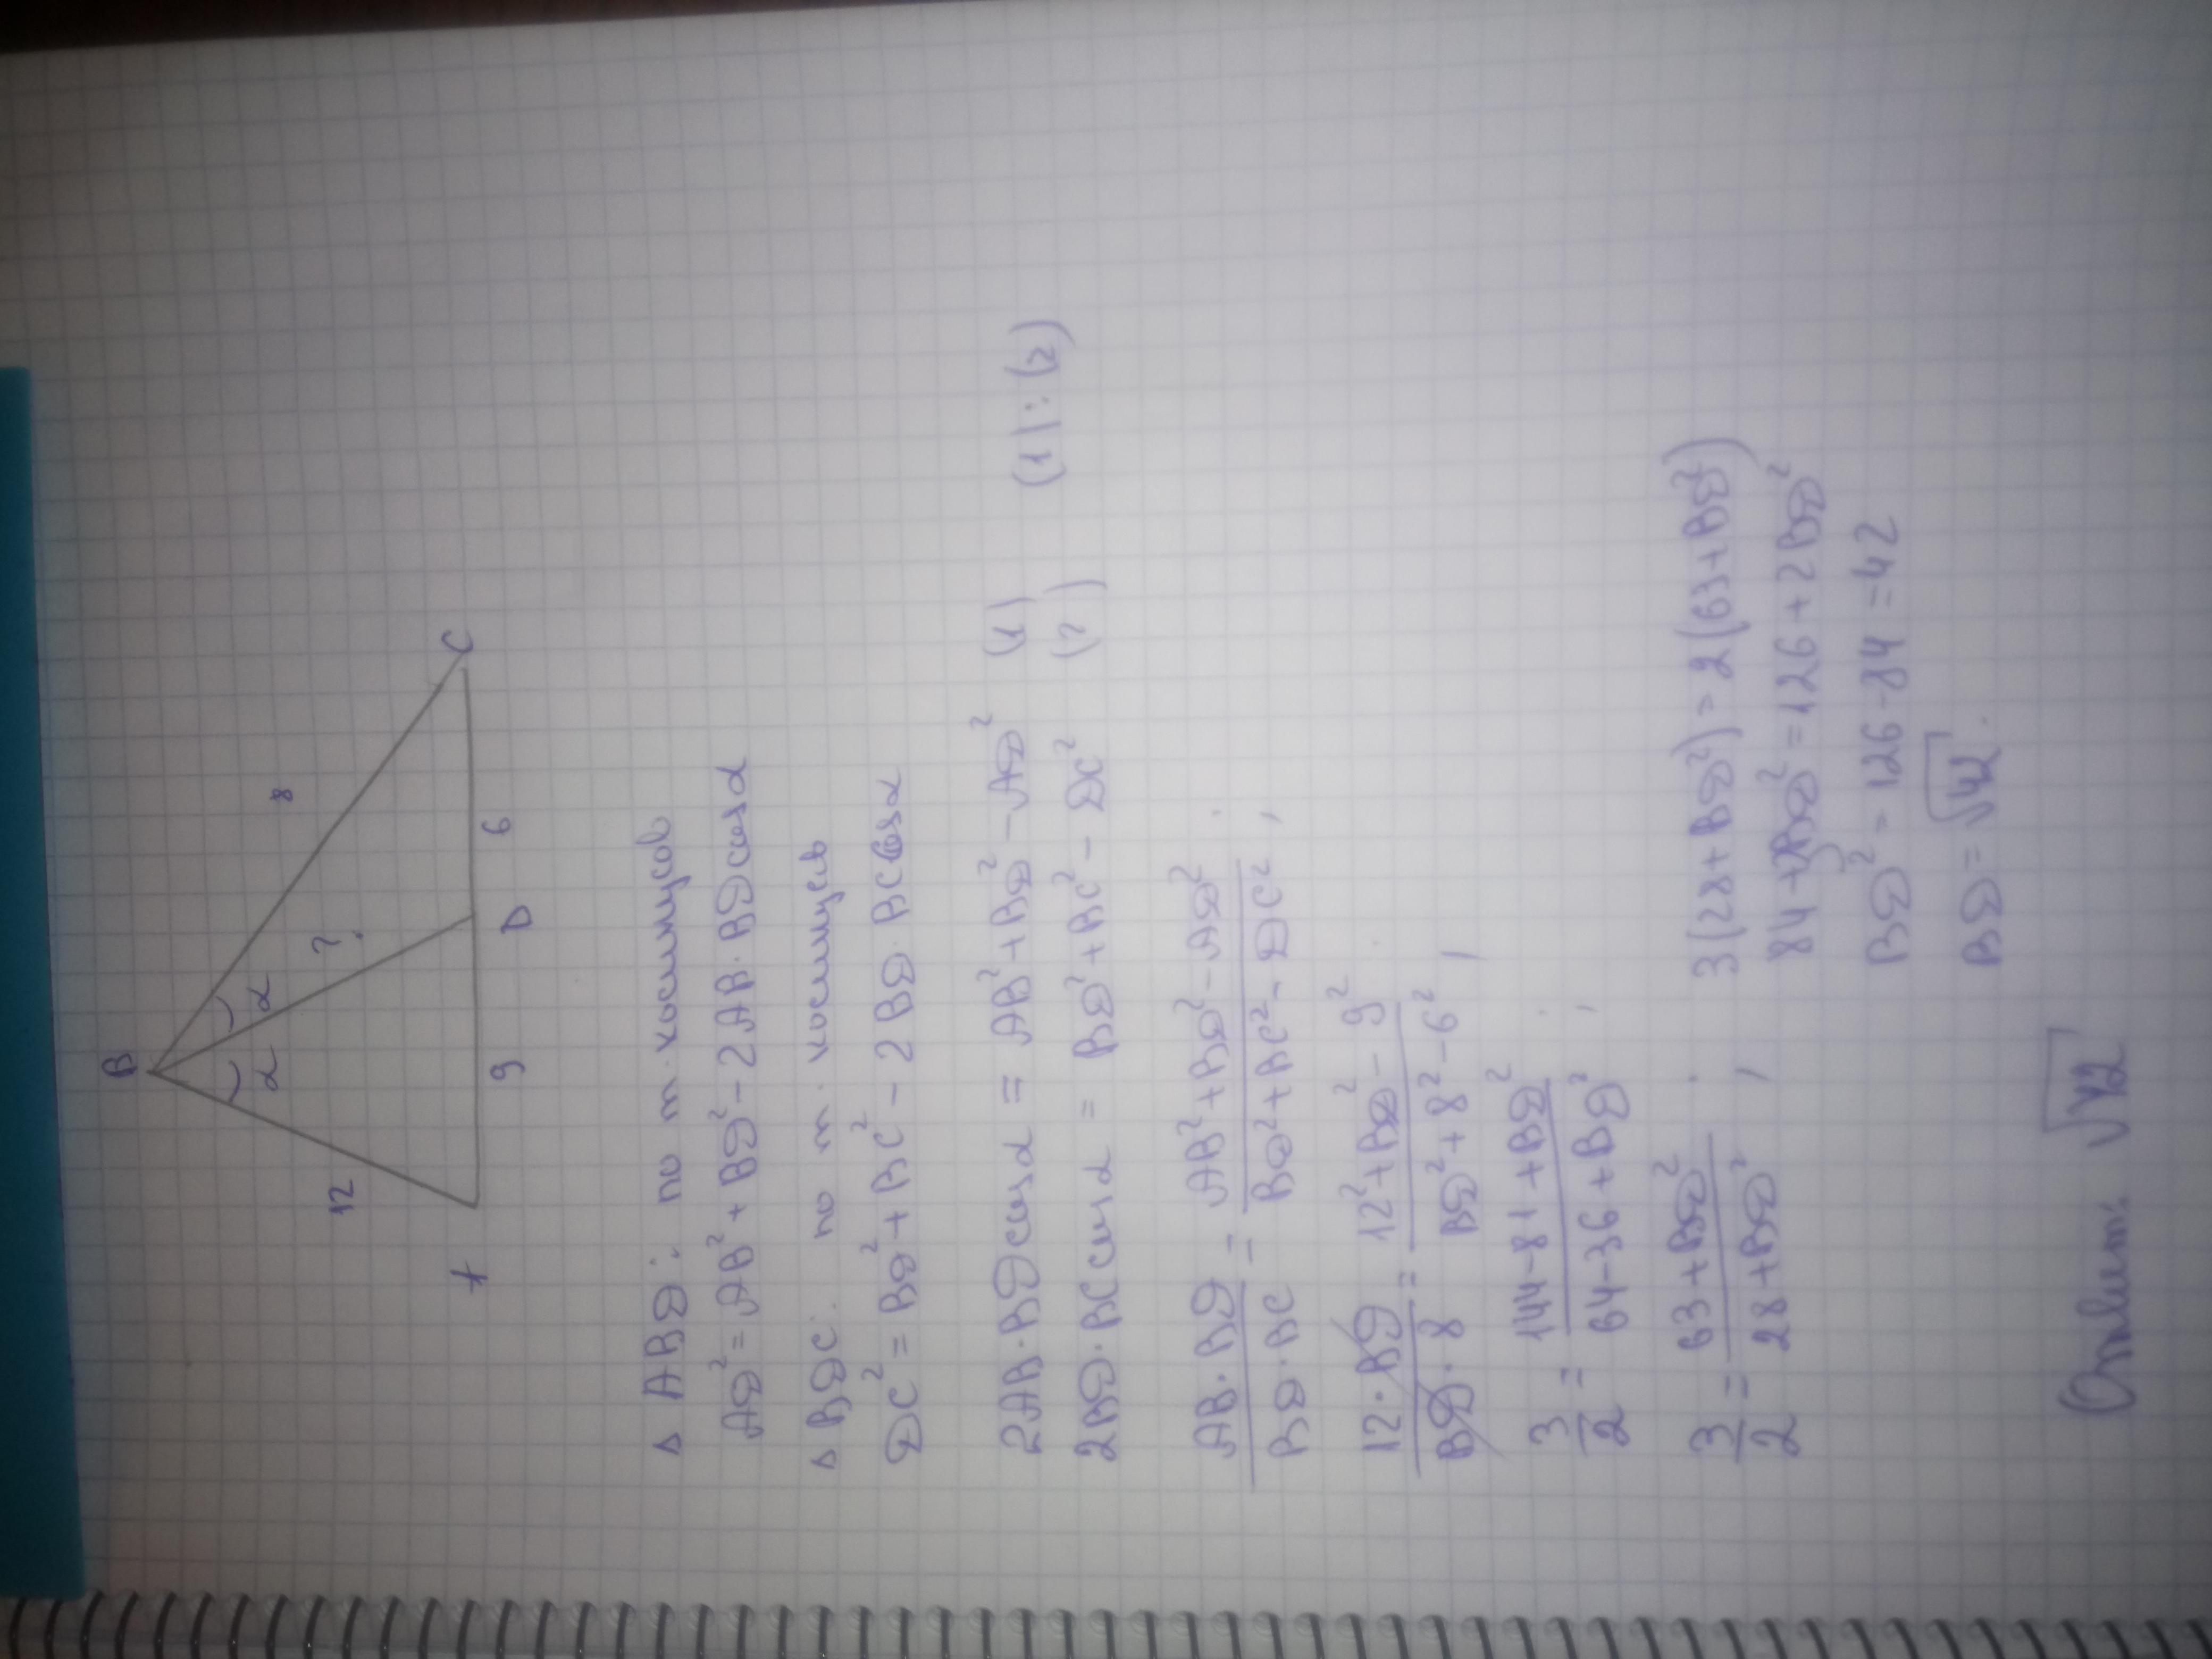 B
α α
12 ? 8
A 9 D 6 C
Δ ABD: по т. косинусов
AD² = AB² + BD² - 2AB·BD cos α
Δ BDC: по т. косинусов
DC² = BD² + BC² - 2BD·BC cos α
2AB·BD cos α = AB² + BD² - AD² (1)
2BD·BC cos α = BD² + BC² - DC² (2) (1):(2)
AB·BD / BD·BC = AB² + BD² - AD² / BD² + BC² - DC² ;
12·BD / BD·8 = 12² + BD² - 9² / BD² + 8² - 6² ;
3/2 = 144 - 81 + BD² / 64 - 36 + BD² ;
3/2 = 63 + BD² / 28 + BD² ; 3(28 + BD²) = 2(63 + BD²)
84 + 3BD² = 126 + 2BD²
BD² = 126 - 84 = 42
BD = √42.
Ответ: √42